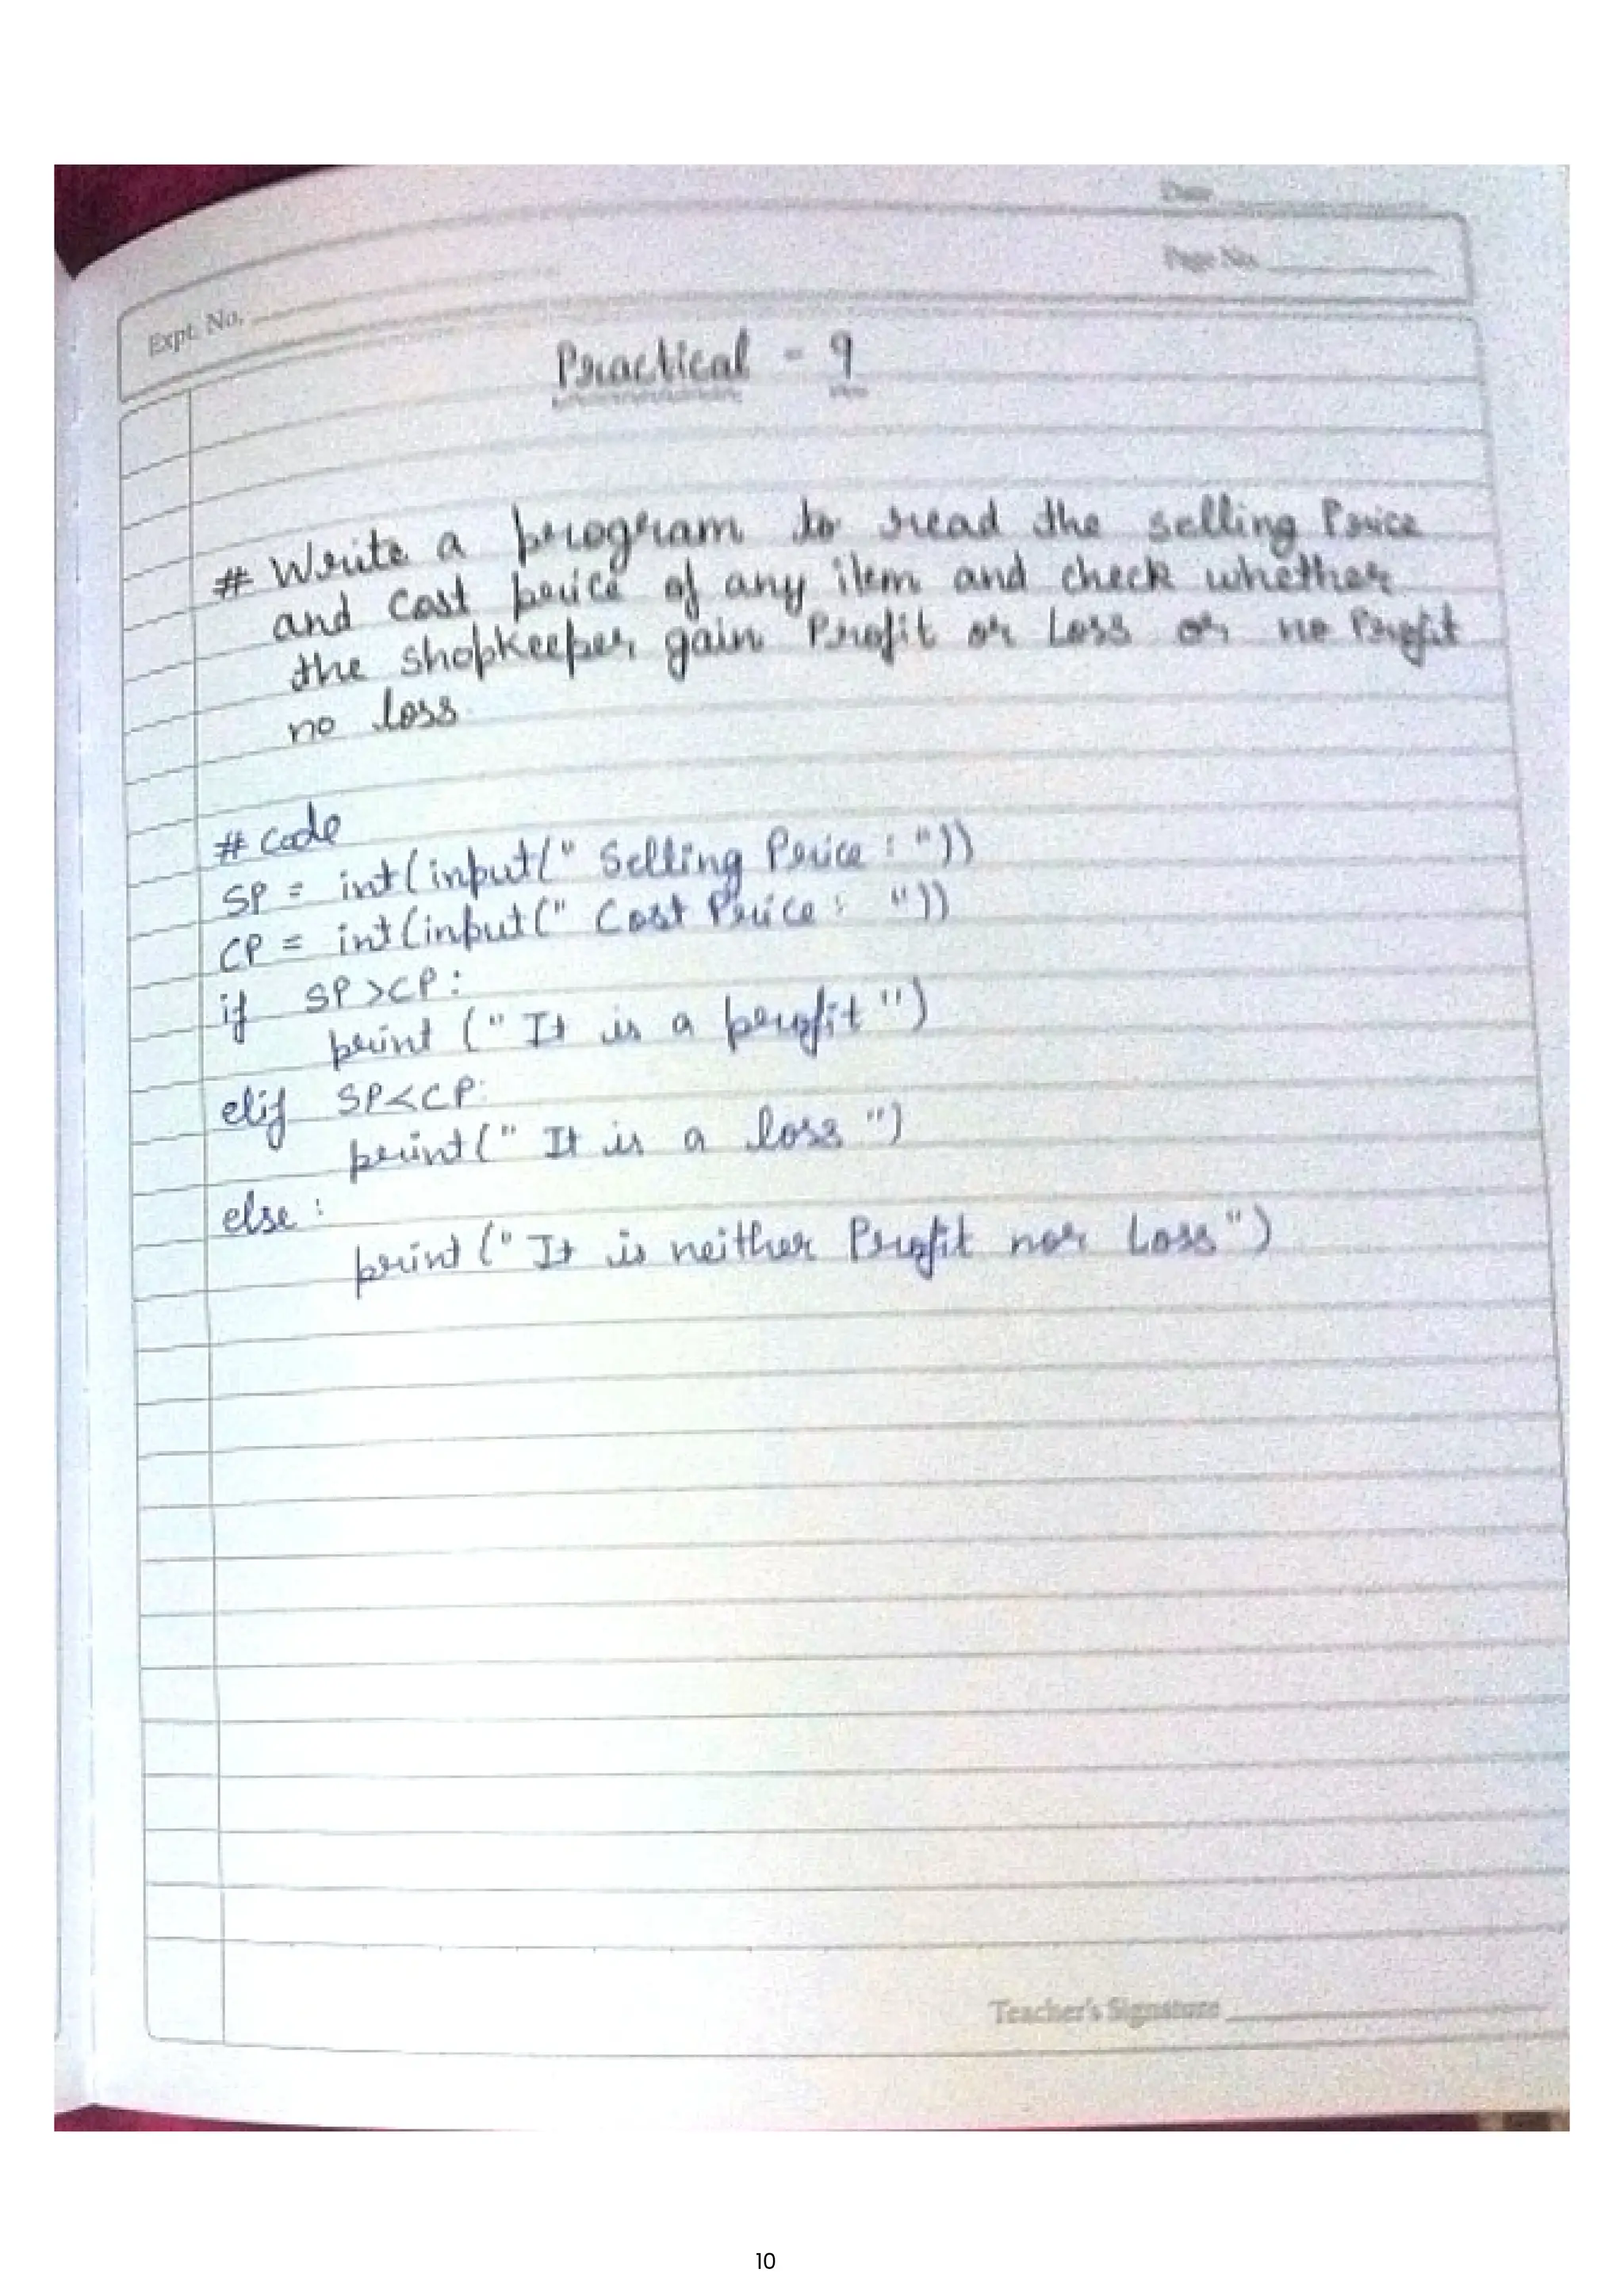 Date
Page No.
Expt. No.
Practical - 9
# Write a program to read the selling Price
and cost price of any item and check whether
the shopkeeper gain Profit or Loss or no Profit
no loss
# code
SP = int(input(" Selling Price : "))
CP = int(input(" Cost Price : "))
if SP>CP:
print (" It is a profit ")
elif SP<CP:
print(" It is a loss ")
else :
print (" It is neither Profit nor Loss ")
Teacher's Signature
10